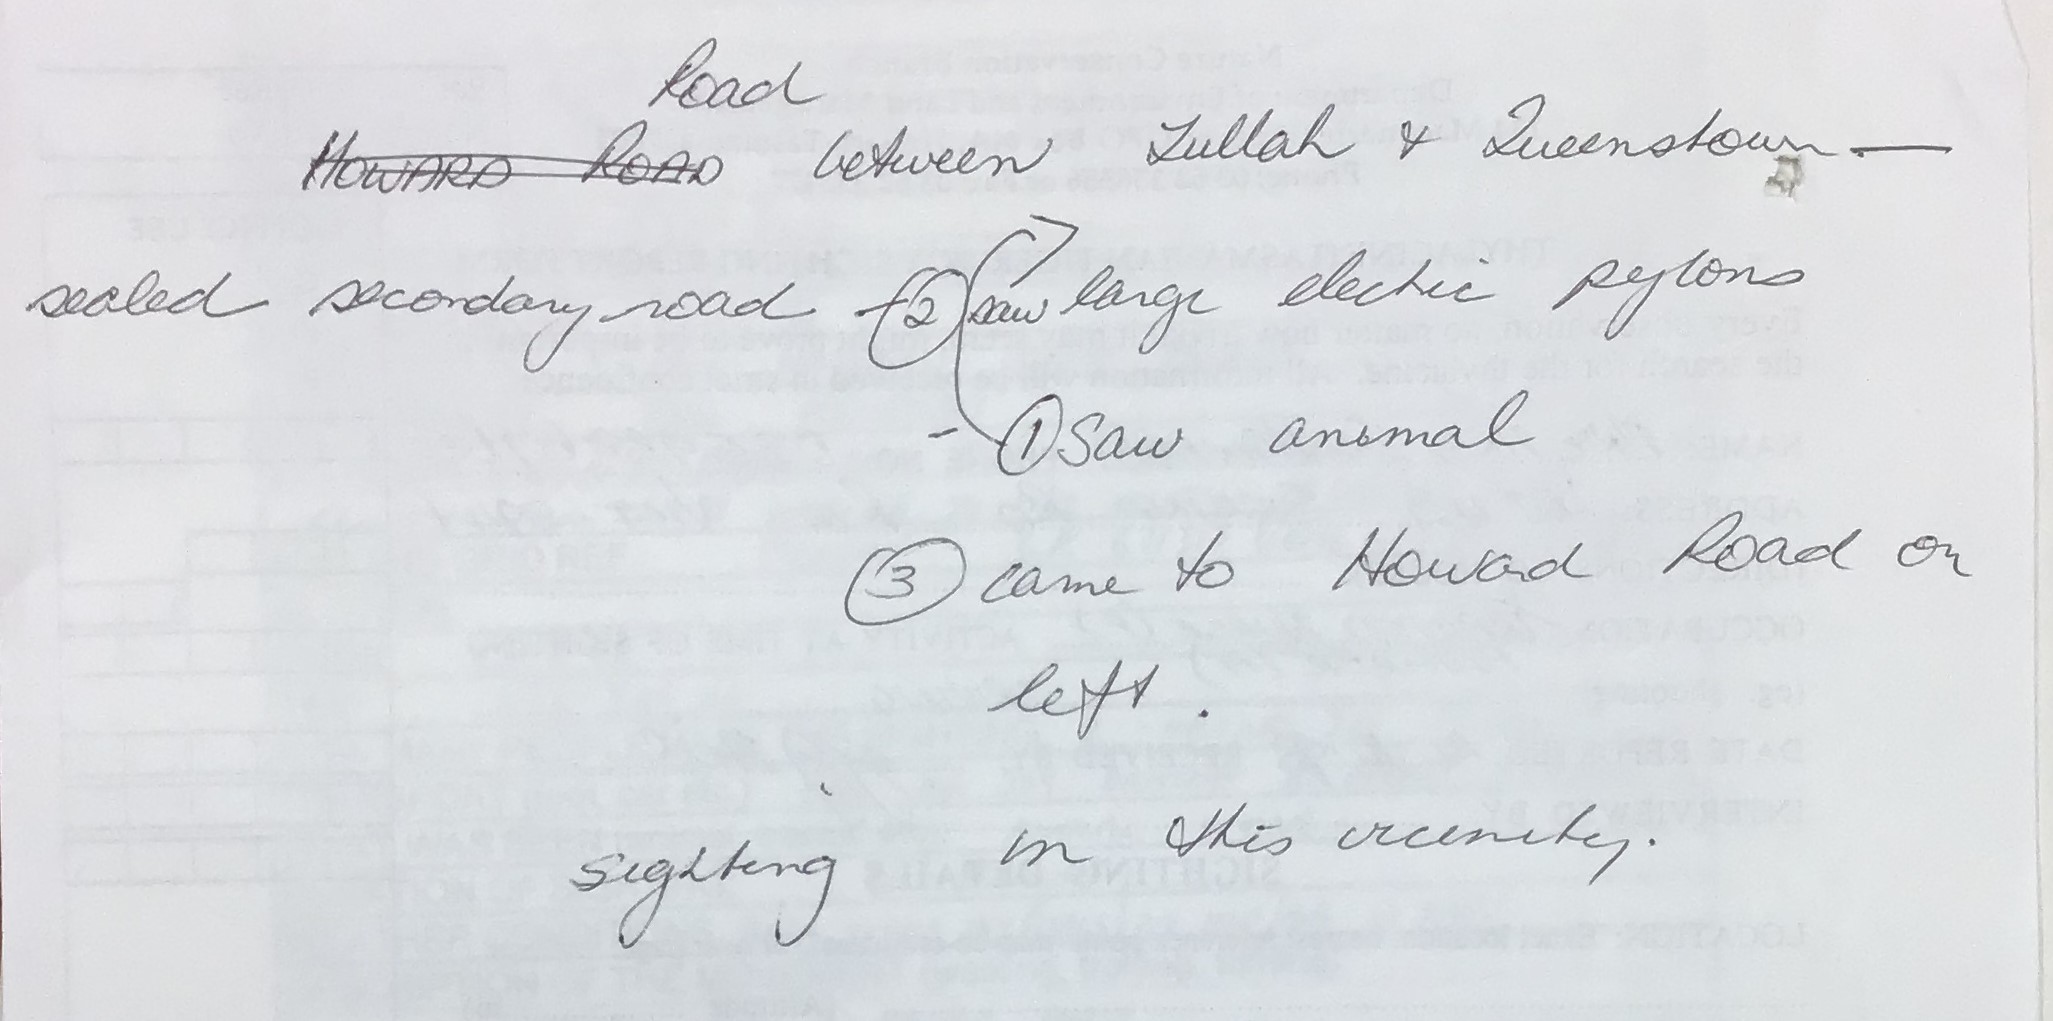 Road
HOWARD ROAD between Tullah & Queenstown —
sealed secondary road - (2) saw large electric pylons
- (1) Saw animal
(3) came to Howard Road on
left.
sighting in this vicinity.